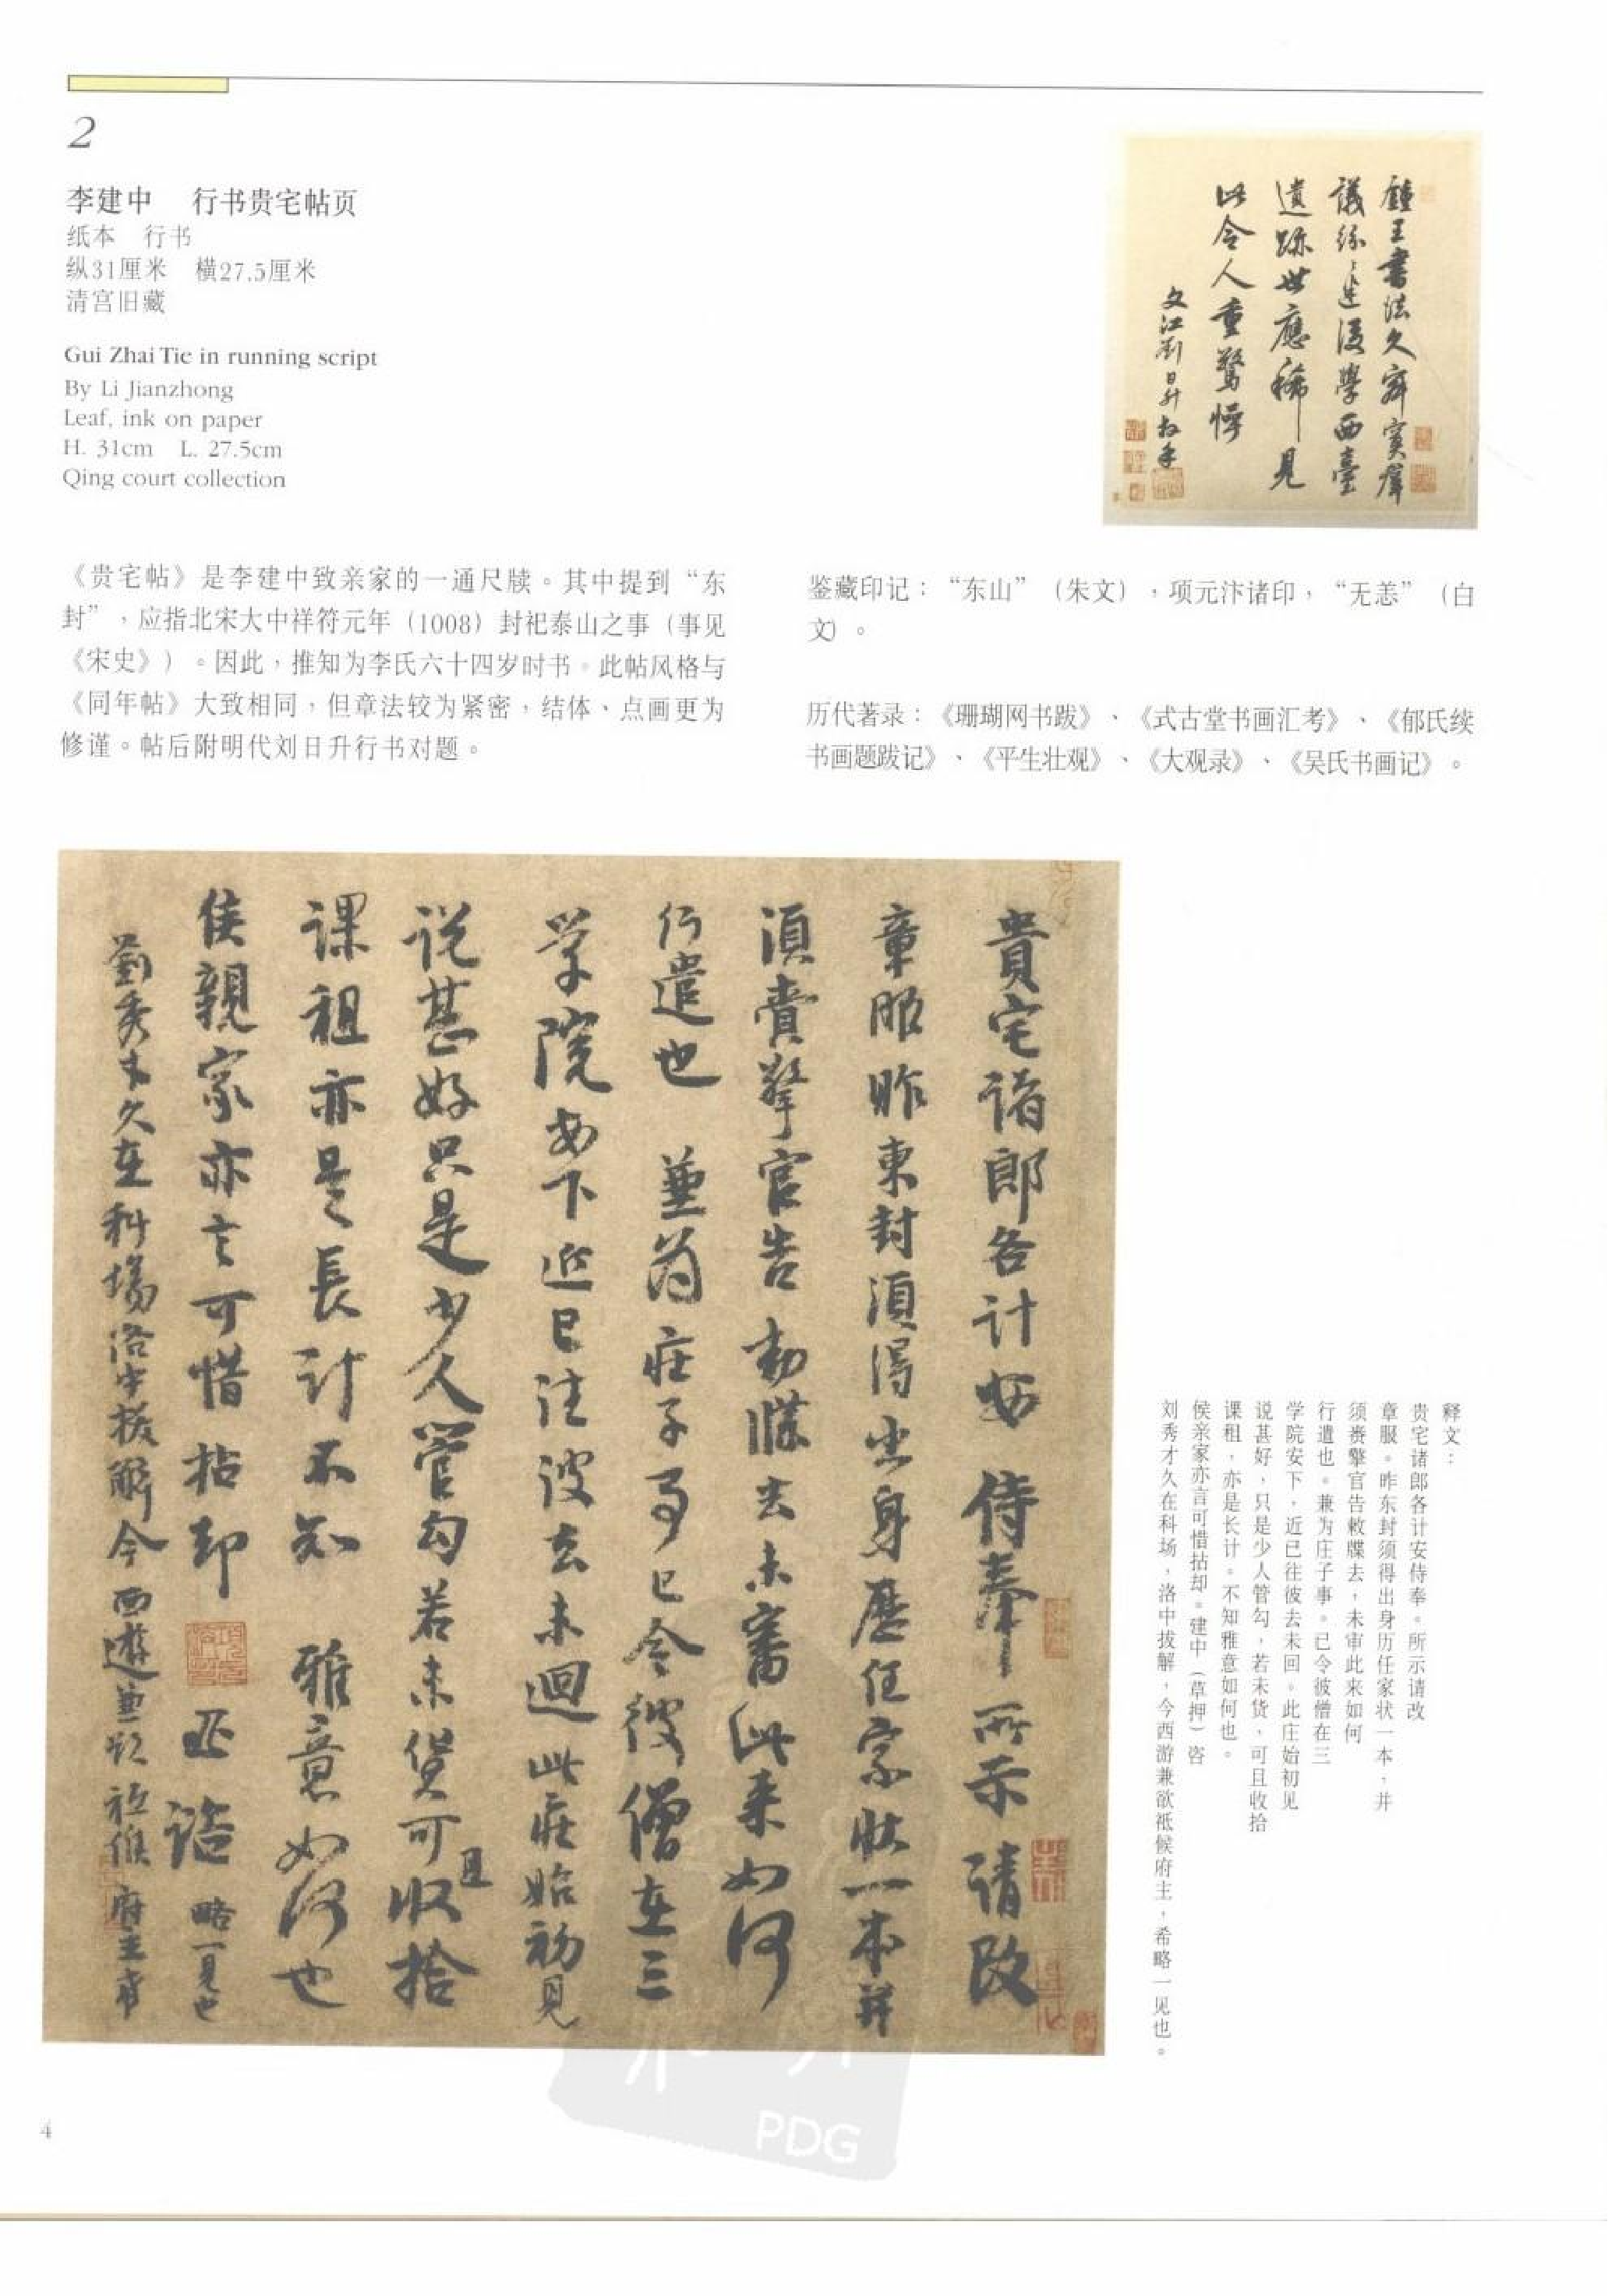 2
李建中　行书贵宅帖页
纸本　行书
纵31厘米　横27.5厘米
清宫旧藏
Gui Zhai Tie in running script
By Li Jianzhong
Leaf, ink on paper
H. 31cm　L. 27.5cm
Qing court collection
鍾王書法久寂寞羣
議紛紛迷後學西臺
遺跡世應稀見
此令人重驚愕
文江劉日升放手
《贵宅帖》是李建中致亲家的一通尺牍。其中提到“东
封”，应指北宋大中祥符元年（1008）封祀泰山之事（事见
《宋史》）。因此，推知为李氏六十四岁时书。此帖风格与
《同年帖》大致相同，但章法较为紧密，结体、点画更为
修谨。帖后附明代刘日升行书对题。
鉴藏印记：“东山”（朱文），项元汴诸印，“无恙”（白
文）。
历代著录：《珊瑚网书跋》、《式古堂书画汇考》、《郁氏续
书画题跋记》、《平生壮观》、《大观录》、《吴氏书画记》。
貴宅諸郎各計安侍奉所示請改
章服昨東封須得出身歷任家狀一本并
須賫擎官告勅牒去未審此来如何
行遣也 兼为庄子事已令彼僧在三
学院安下近已往彼去未迴此庄始初見
说甚好只是少人管勾若未貨可且收拾
课祖亦是長計不知 雅意如何也
侯親家亦言可惜拈却 諮 略一見也
劉秀才久在科場洛中拔解今西遊兼欲祗候府主希
释文：
贵宅诸郎各计安侍奉。所示请改
章服。昨东封须得出身历任家状一本，并
须赉擎官告敕牒去，未审此来如何
行遣也。兼为庄子事。已令彼僧在三
学院安下，近已往彼去未回。此庄始初见
说甚好，只是少人管勾，若未货，可且收拾
课租，亦是长计。不知雅意如何也。
侯亲家亦言可惜拈却。建中（草押）咨
刘秀才久在科场，洛中拔解，今西游兼欲祗候府主，希略一见也。
4
PDG